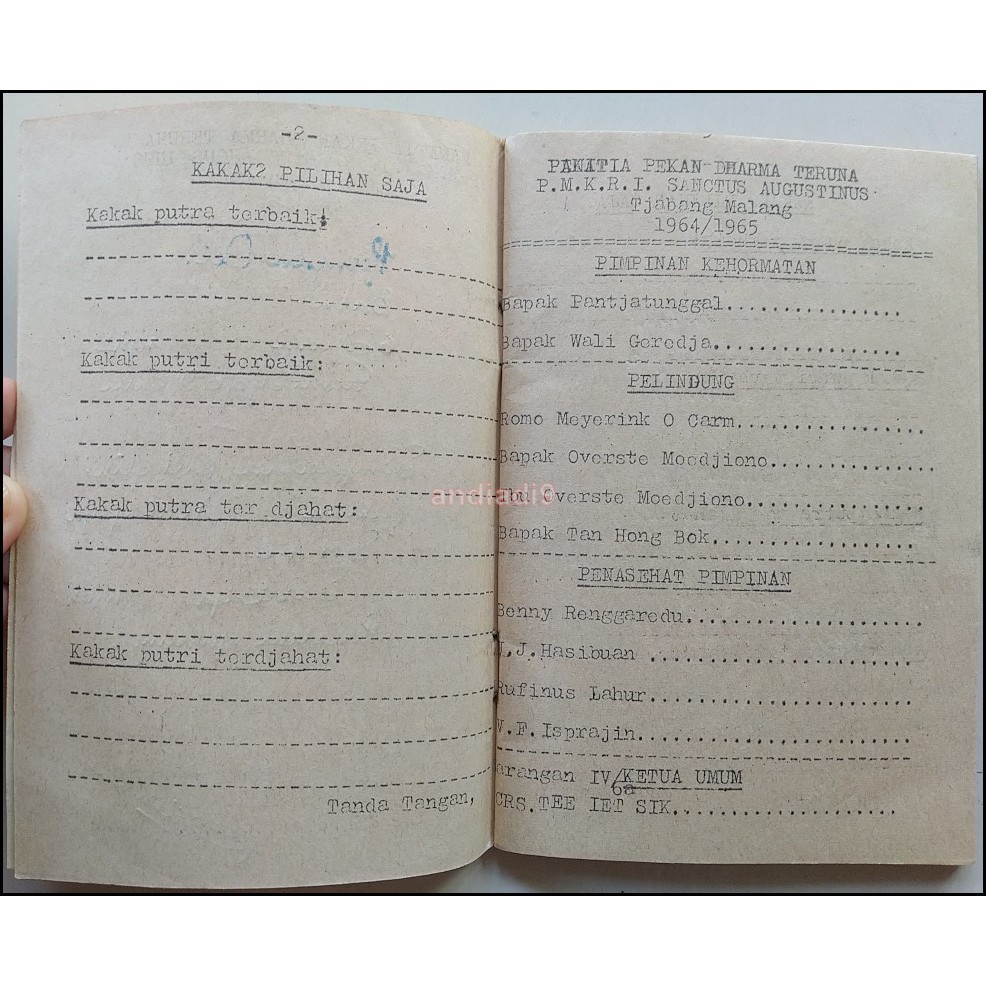 -2-
KAKAK2 PILIHAN SAJA
Kakak putra terbaik:
Kakak putri terbaik:
Kakak putra ter djahat:
Kakak putri terdjahat:
Tanda Tangan,
PANITIA PEKAN DHARMA TERUNA
P.M.K.R.I. SANCTUS AUGUSTINUS
Tjabang Malang
1964/1965
PIMPINAN KEHORMATAN
Bapak Pantjatunggal................
Bapak Wali Geredja.................
PELINDUNG
Romo Meyerink O Carm................
Bapak Overste Moedjiono.............
Ibu Overste Moedjiono...............
Bapak Tan Hong Bok..................
PENASEHAT PIMPINAN
Benny Renggaredu....................
Hasibuan ......................
Rufinus Lahur.......................
V.F.Isprajin........................
arangan IV/6a KETUA UMUM
TEE IET SIK.....................
andiadi9